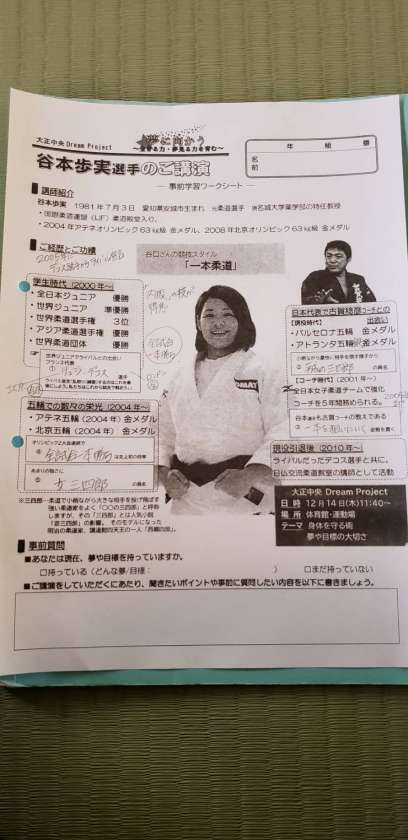 大正中央 Dream Project
夢に向かう
谷本歩実選手のご講演
年 組 番
名前
― 事前学習ワークシート ―
講師紹介
谷本歩実 1981年7月3日 愛知県安城市生まれ 元柔道選手
・国際柔道連盟(IJF)柔道殿堂入り。
・2004年アテネオリンピック63kg級 金メダル、2008年北京オリンピック63kg級 金メダル
ご経歴とご功績
谷口さんの競技スタイル
「一本柔道」
学生時代(2000年~)
・全日本ジュニア 優勝
・世界ジュニア 準優勝
・世界柔道選手権 3位
・アジア柔道選手権 優勝
・世界柔道団体 優勝
世界ジュニアでライバルとの出会い
フランス代表
① リュシ・デコス 選手
五輪での数々の栄光(2004年~)
・アテネ五輪(2004年)金メダル
・北京五輪(2004年)金メダル
オリンピック2大会連続で
② 全試合一本勝ち は史上初の快挙
あまりの強さに
③ 女三四郎 の異名
※三四郎・柔道で小柄ながら大きな相手を投げ飛ばす
強い柔道家をよく「〇〇の三四郎」と呼称
しますが、その「三四郎」とは人気小説
「姿三四郎」の影響。そのモデルになった
明治の柔道家、講道館四天王の一人「西郷四郎」。
日本代表で古賀稔彦コーチとの
出会い
【現役時代】
・バルセロナ五輪 金メダル
・アトランタ五輪 銀メダル
の異名
【コーチ時代】(2001年~)
全日本女子柔道チームで強化
コーチを5年間務められる。
現役引退後(2010年~)
ライバルだったデコス選手と共に、
日仏交流柔道教室の講師として活動
大正中央 Dream Project
日時 12月14日(木)11:40~
場所 体育館・運動場
テーマ 身体を守る術
夢や目標の大切さ
事前質問
■あなたは現在、夢や目標を持っていますか。
□持っている(どんな夢/目標: ) □まだ持っていない
■ご講演をしていただくにあたり、聞きたいポイントや事前に質問したい内容を以下に書きましょう。